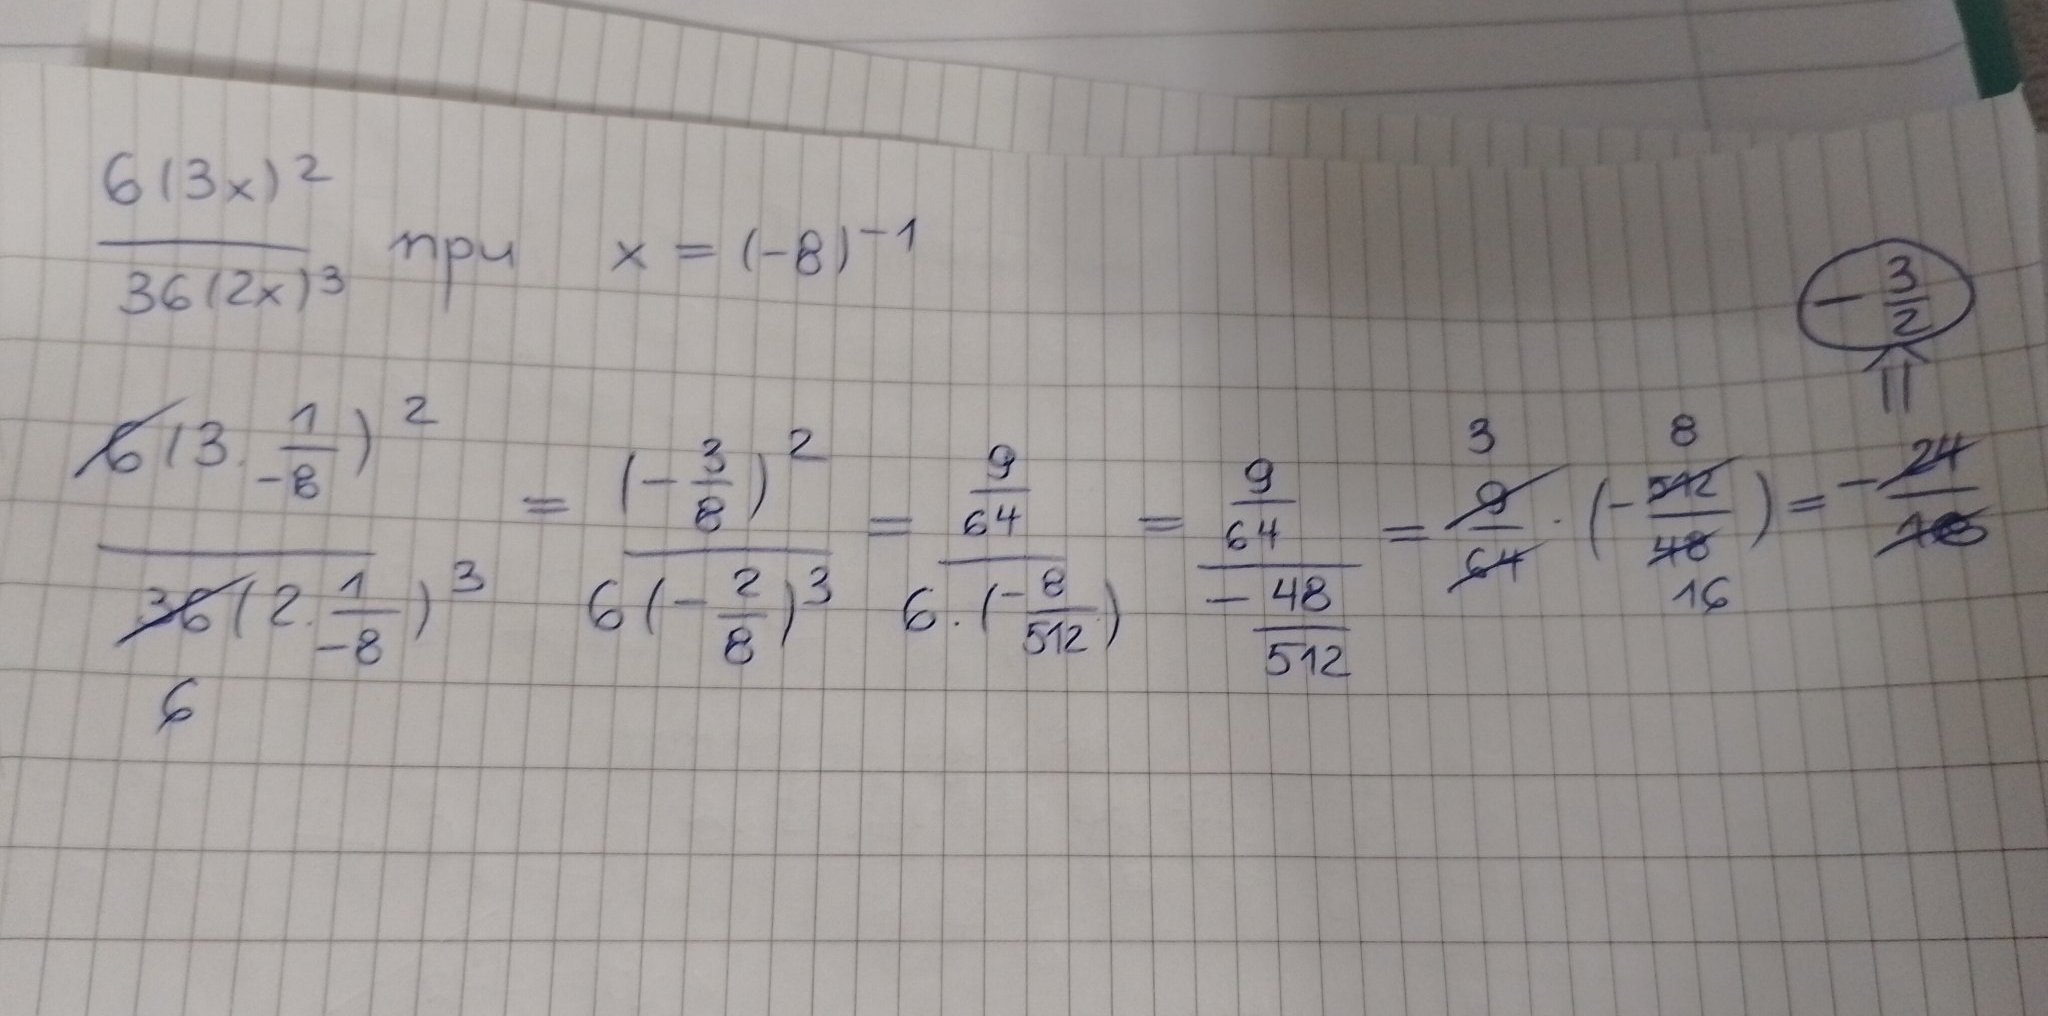 6(3x)²
/ 36(2x)³ при x = (-8)⁻¹
- 3/2
⇑
6(3·1/-8)² / 36(2·1/-8)³ = (-3/8)² / 6(-2/8)³ = 9/64 / 6·(-8/512) = 9/64 / -48/512 = 9/64 · (-512/48) = -24/16
3 8
16
6